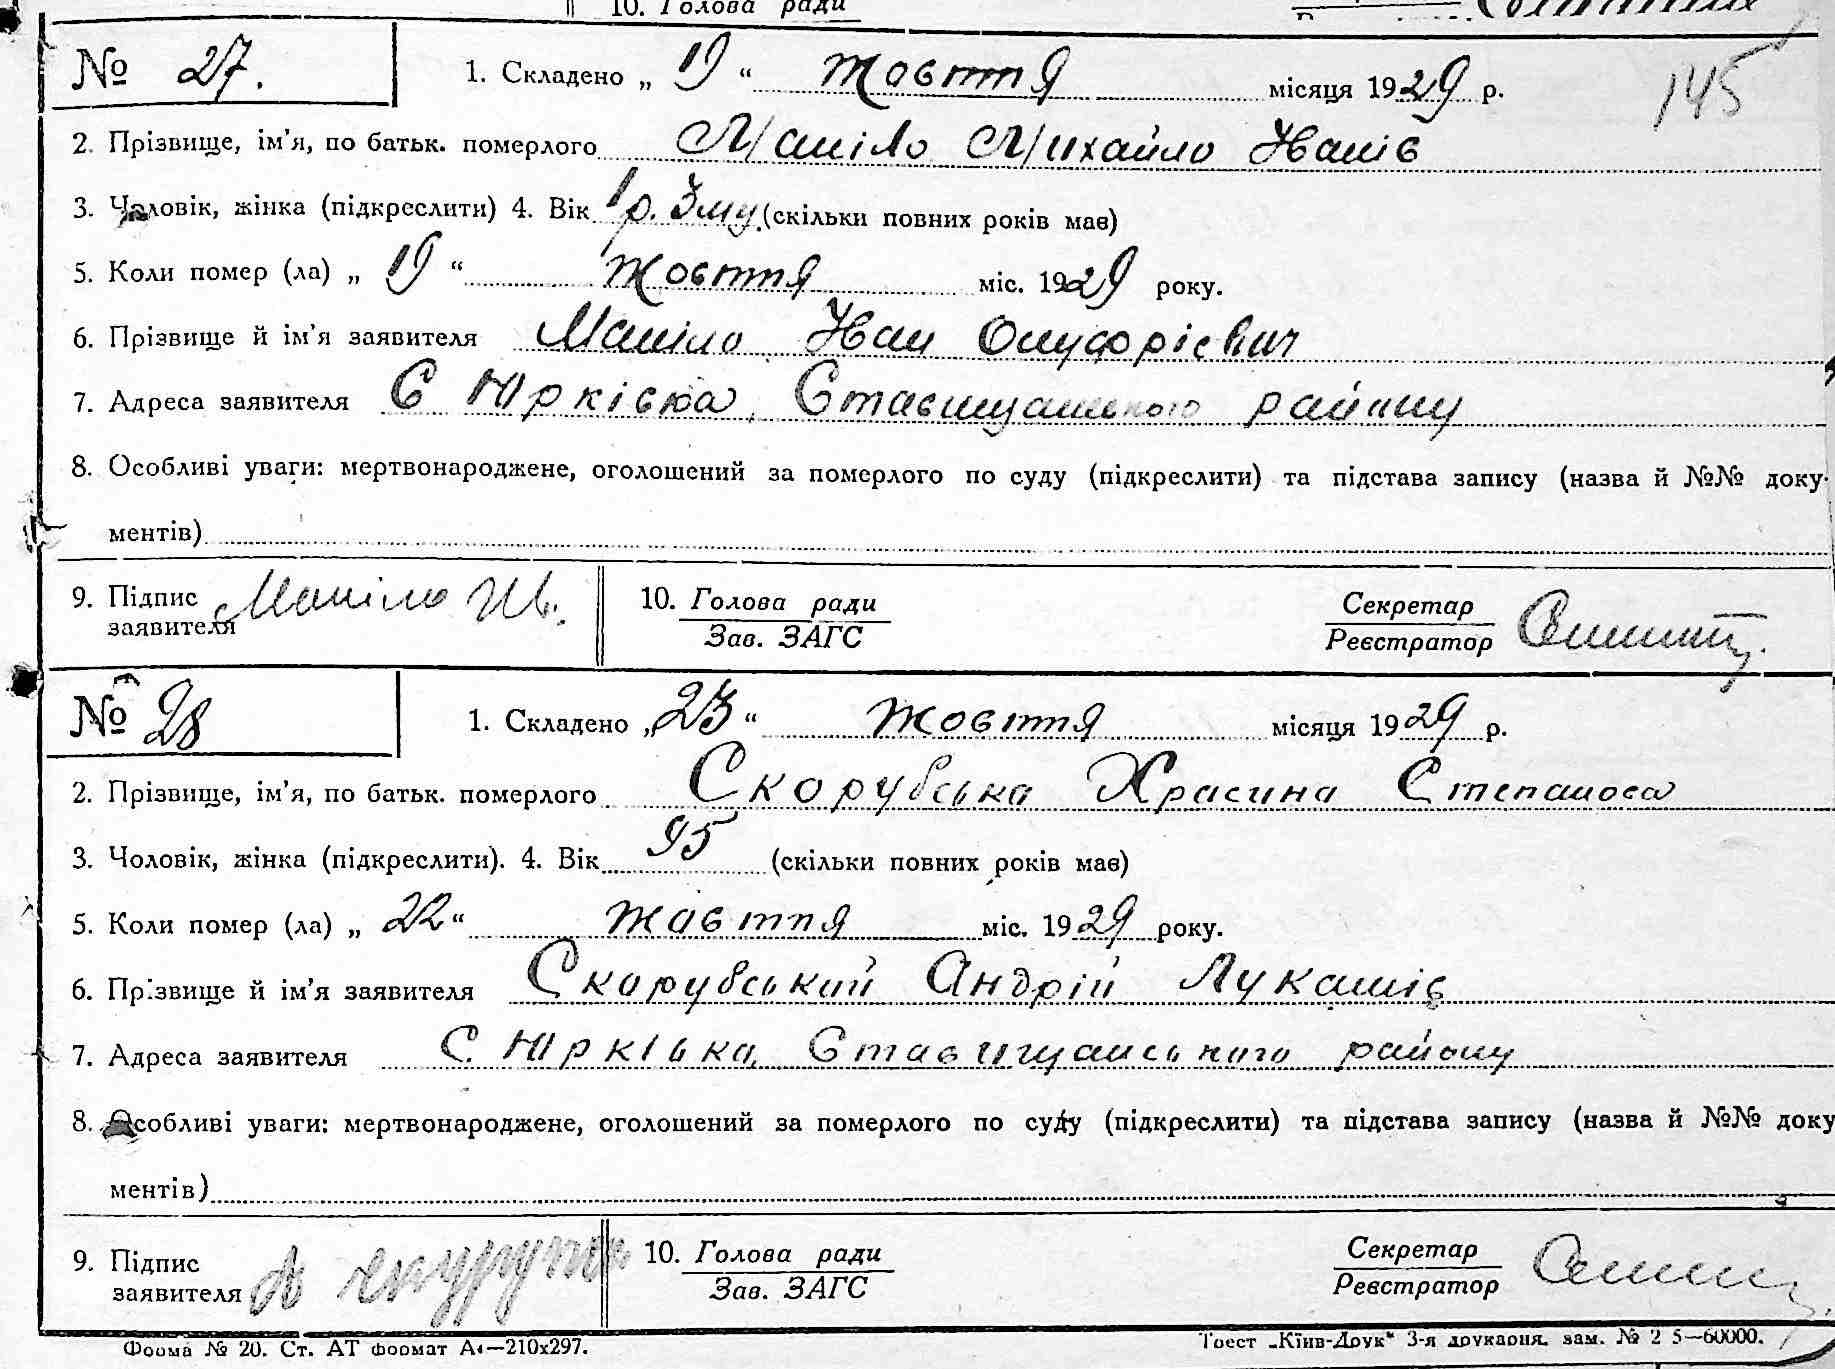 10. Голова ради
№ 27. 1. Складено „ 19 “ жовтня місяця 1929 р. 145
2. Прізвище, ім’я, по батьк. померлого Маніло Михайло Іванів
3. Чоловік, жінка (підкреслити) 4. Вік 1 р. 3 м-у. (скільки повних років має)
5. Коли помер (ла) „ 19 “ жовтня міс. 1929 року.
6. Прізвище й ім’я заявителя Маніло Іван Онуфрієвич
7. Адреса заявителя С Юрківка, Ставищанського району
8. Особливі уваги: мертвонароджене, оголошений за померлого по суду (підкреслити) та підстава запису (назва й №№ доку-
ментів)
9. Підпис заявителя Маніло Ив. 10. Голова ради Зав. ЗАГС Секретар Реєстратор
№ 28 1. Складено „ 23 “ жовтня місяця 1929 р.
2. Прізвище, ім’я, по батьк. померлого Скорубська Храсина Степанова
3. Чоловік, жінка (підкреслити). 4. Вік 95 (скільки повних років має)
5. Коли помер (ла) „ 22 “ жовтня міс. 1929 року.
6. Прізвище й ім’я заявителя Скорубський Андрій Лукашів
7. Адреса заявителя С. Юрківка, Ставищанського району
8. Особливі уваги: мертвонароджене, оголошений за померлого по суду (підкреслити) та підстава запису (назва й №№ доку
ментів)
9. Підпис заявителя 10. Голова ради Зав. ЗАГС Секретар Реєстратор
Форма № 20. Ст. АТ формат А4—210x297. Трест „Київ-Друк“ 3-я друкарня. зам. № 2 5—60000.